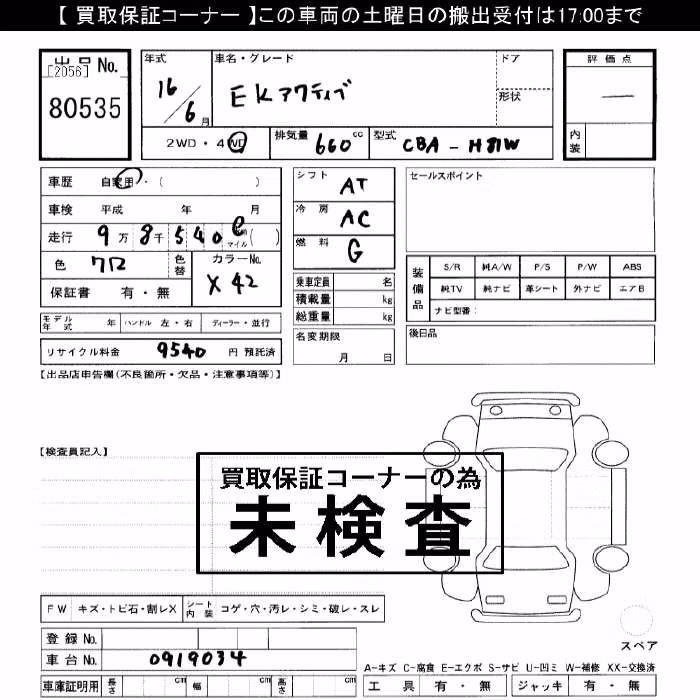 【 買取保証コーナー 】この車両の土曜日の搬出受付は17:00まで
出品 No.
[2056]
80535
年式
16/6月
車名・グレード
EKアクティブ
ドア
形状
評価点
—
内装
2WD・4WD
排気量 660 cc
型式 CBA - H81W
車歴 自家用・( )
車検 平成 年 月
走行 9万8千540 マイル( )
色 クロ
色替
カラーNo. X42
保証書 有・無
シフト AT
冷房 AC
燃料 G
乗車定員 名
積載量 kg
総重量 kg
セールスポイント
装備品
S/R 純A/W P/S P/W ABS
純TV 純ナビ 革シート 外ナビ エアB
ナビ型番:
モデル年式 年 ハンドル 左・右 ディーラー・並行
リサイクル料金 9540 円 預託済
名変期限
月 日
後日品
【出品店申告欄(不良箇所・欠品・注意事項等)】
【検査員記入】
買取保証コーナーの為
未検査
FW キズ・トビ石・割レX シート内装 コゲ・穴・汚レ・シミ・破レ・スレ
登録 No.
車台 No. 0919034
車庫証明用 長さ cm 幅 cm 高さ cm
スペア
A-キズ C-腐食 E-エクボ S-サビ U-凹ミ W-補修 XX-交換済
工具 有・無 ジャッキ 有・無